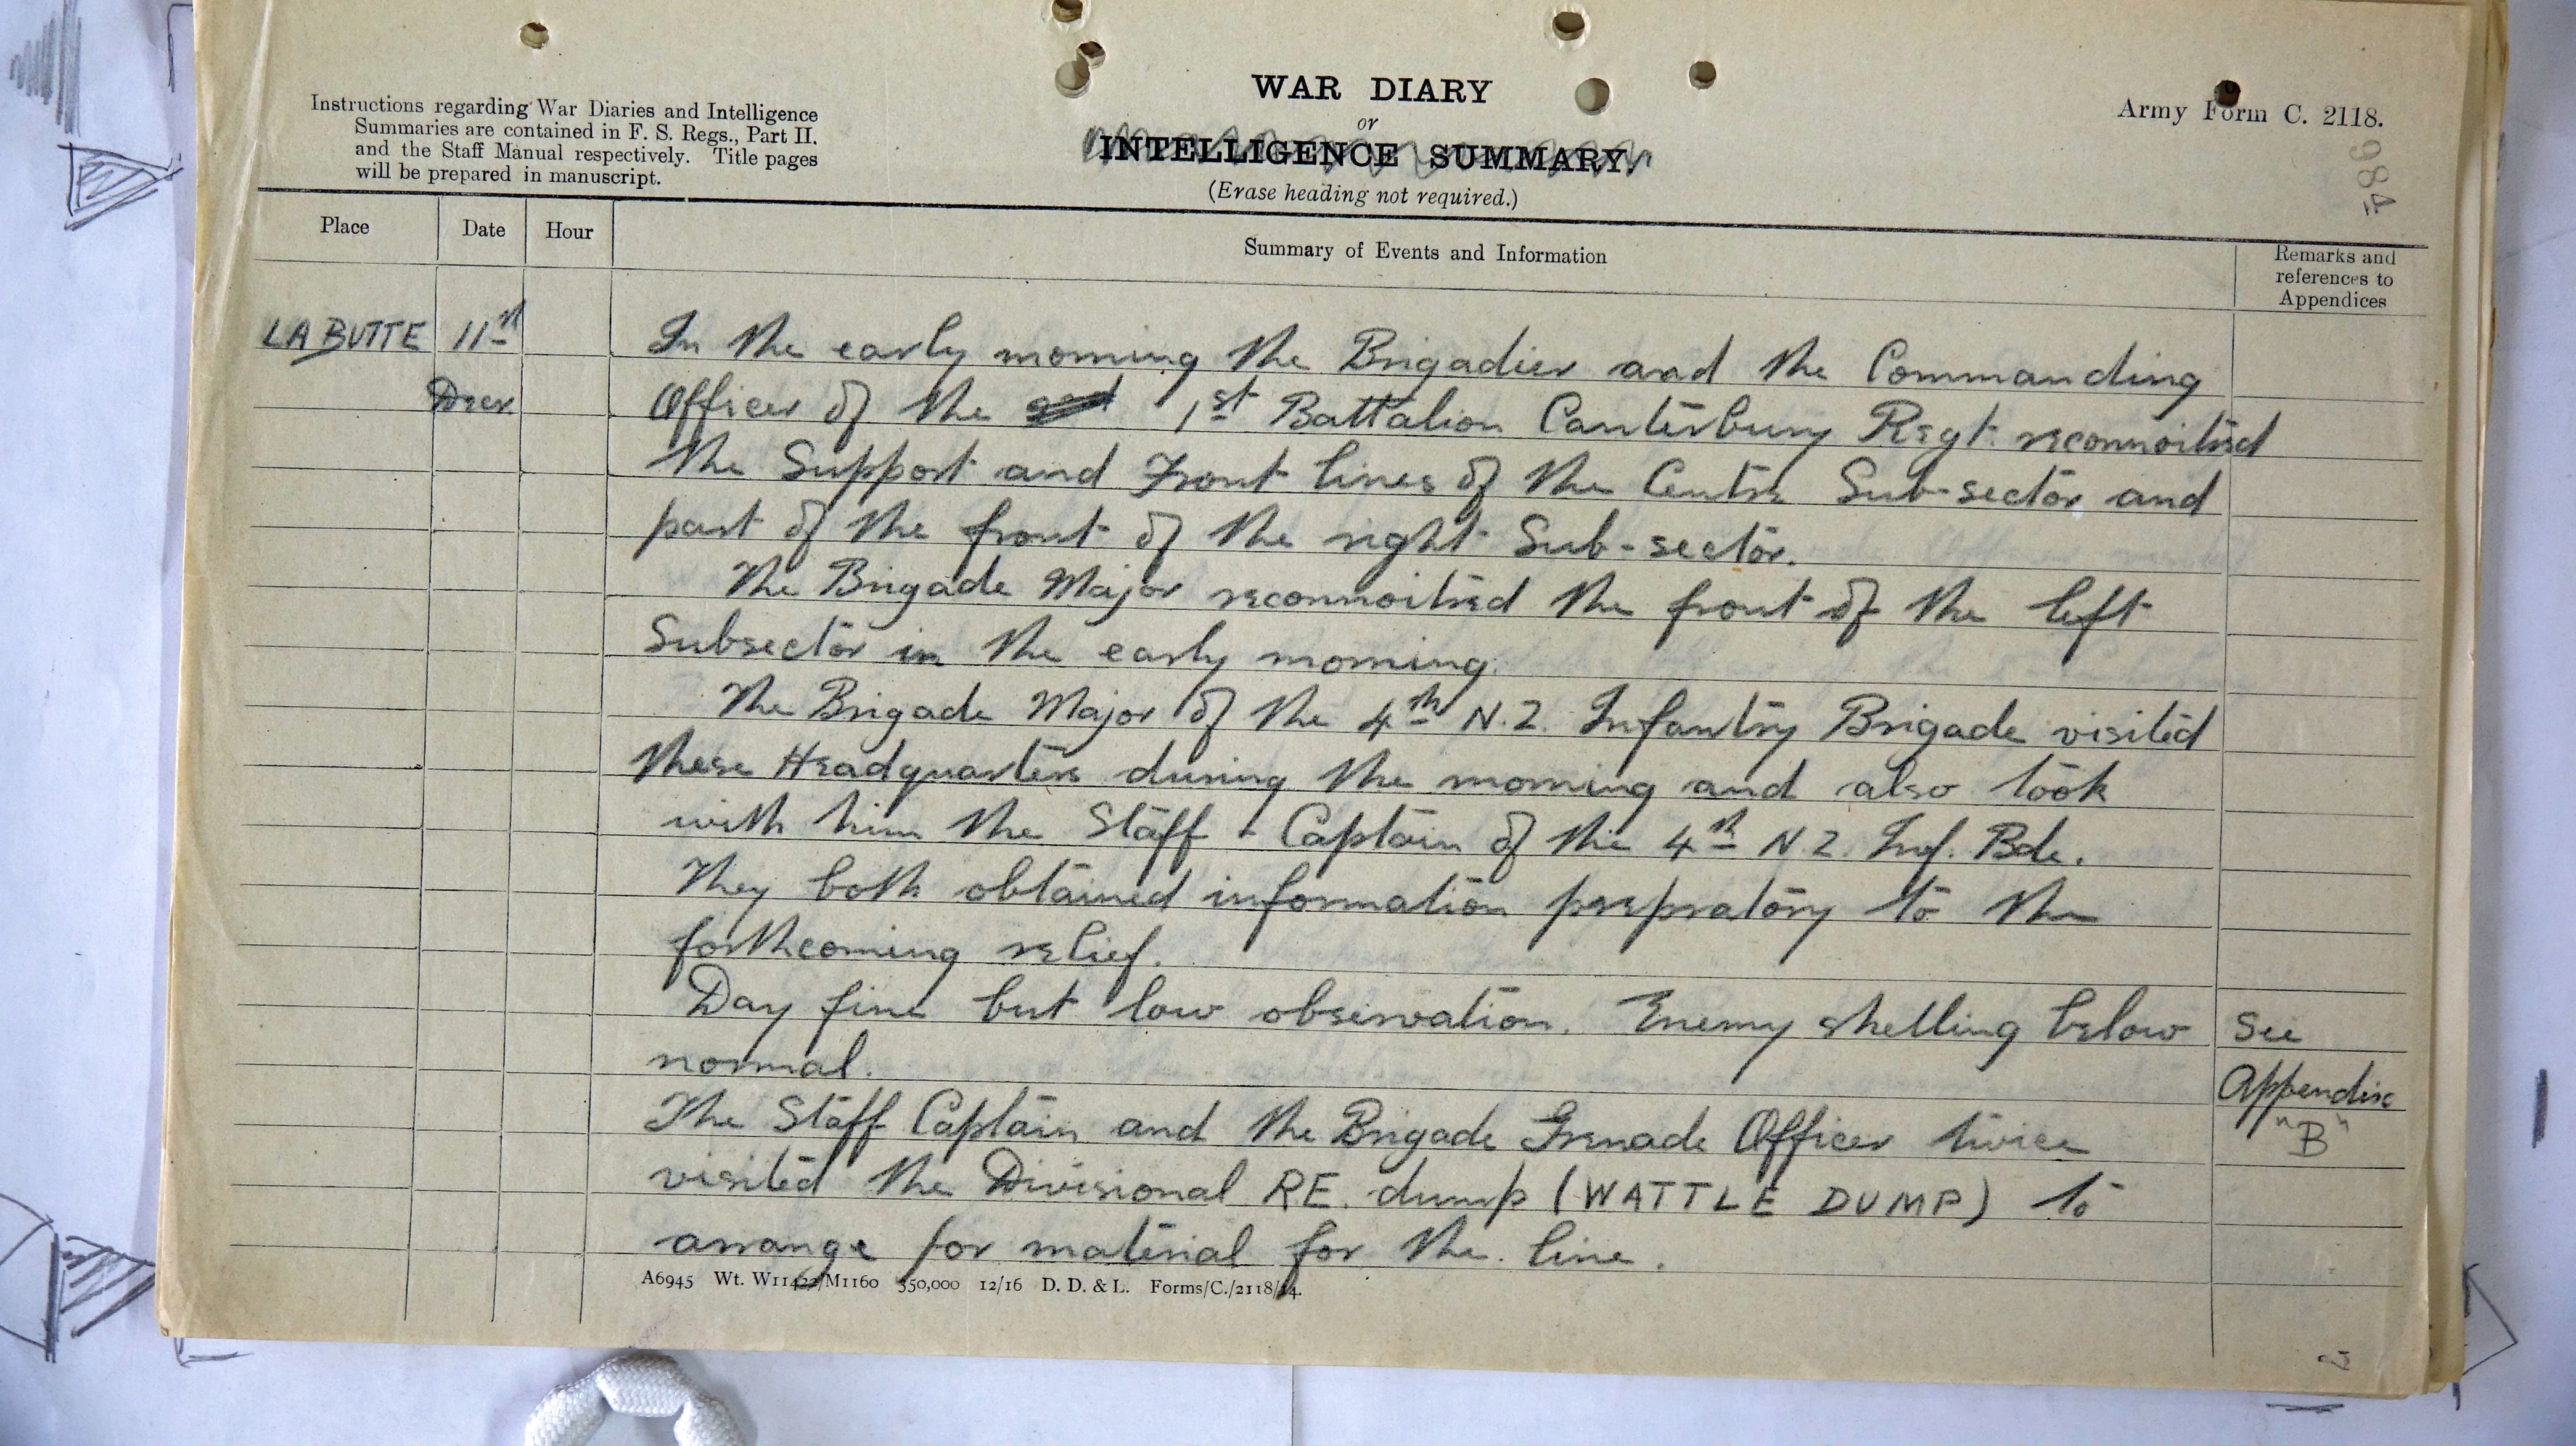 Instructions regarding War Diaries and Intelligence
Summaries are contained in F. S. Regs., Part II.
and the Staff Manual respectively. Title pages
will be prepared in manuscript.
WAR DIARY
or
INTELLIGENCE SUMMARY.
(Erase heading not required.)
Army Form C. 2118.
984
Place
Date
Hour
Summary of Events and Information
Remarks and
references to
Appendices
LA BUTTE 11th In the early morning the Brigadier and the Commanding
Officer of the 1st Battalion Canterbury Regt. reconnoitred
the Support and Front lines of the Centre Sub-sector and
part of the front of the right Sub-sector.
The Brigade Major reconnoitred the front of the left
Subsector in the early morning.
The Brigade Major of the 4th N.Z. Infantry Brigade visited
these Headquarters during the morning and also took
with him the Staff-Captain of the 4th N.Z. Inf. Bde.
They both obtained information prepratory to the
forthcoming relief.
Day fine but low observation. Enemy shelling below
normal.
See
Appendix
"B"
The Staff Captain and the Brigade Grenade Officer twice
visited the Divisional RE. dump (WATTLE DUMP) to
arrange for material for the line.
A6945 Wt. W11422/M1160 350,000 12/16 D. D. & L. Forms/C./2118/14.